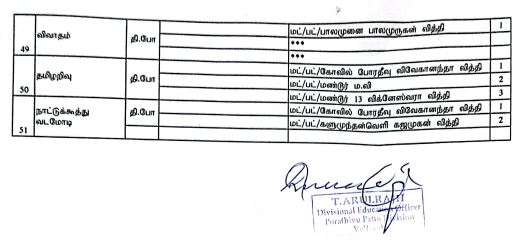 49 விவாதம் தி.போ மட்/பட்/பாலமுனை பாலமுருகன் வித்தி 1
***
***
50 தமிழறிவு தி.போ மட்/பட்/கோவில் போரதீவு விவேகானந்தா வித்தி 1
மட்/பட்/மண்டூர் ம.வி 2
மட்/பட்/மண்டூர் 13 விக்னேஸ்வரா வித்தி 3
51 நாட்டுக்கூத்து வடமோடி தி.போ மட்/பட்/கோவில் போரதீவு விவேகானந்தா வித்தி 1
மட்/பட்/களுமுந்தன்வெளி கஜமுகன் வித்தி 2
T.ARULRAJH
Divisional Education Officer
Porathivu Pattu Division